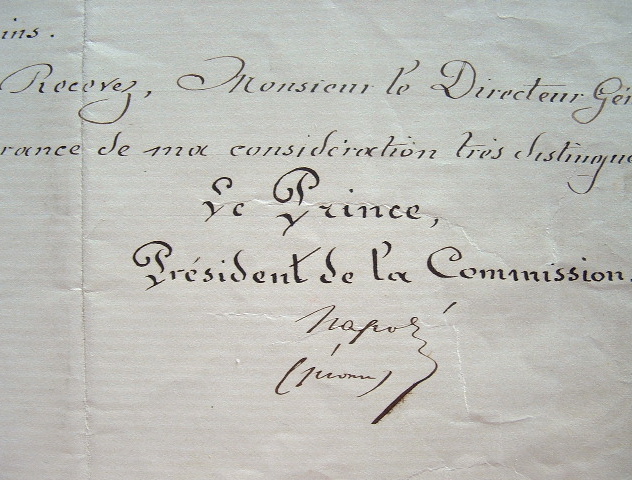 ins.
Recevez, Monsieur le Directeur Gén
rance de ma considération très distingué
Le Prince,
Président de la Commission.
Napolé
(Jérome)